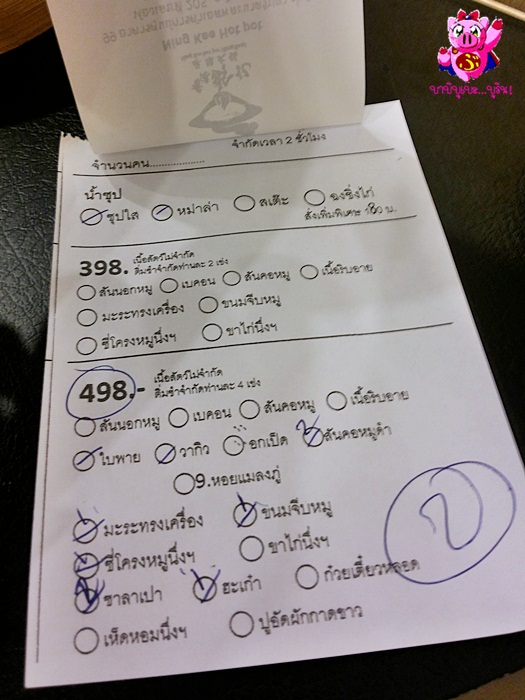 Ning Kee Hot pot
บาบีบูเบะ...บูริน!
จำกัดเวลา 2 ชั่วโมง
จำนวนคน....................
น้ำซุป
ซุปใส หม่าล่า สเต๊ะ ฉงชิ่งไก่
สั่งเพิ่มพิเศษ 180 บ.
398.
เนื้อสัตว์ไม่จำกัด
ติ่มซำจำกัดท่านละ 2 เข่ง
สันนอกหมู เบคอน สันคอหมู เนื้อริบอาย
มะระทรงเครื่อง ขนมจีบหมู
ซี่โครงหมูนึ่งฯ ขาไก่นึ่งฯ
498.-
เนื้อสัตว์ไม่จำกัด
ติ่มซำจำกัดท่านละ 4 เข่ง
สันนอกหมู เบคอน สันคอหมู เนื้อริบอาย
ใบพาย วากิว อกเป็ด สันคอหมูดำ
9.หอยแมลงภู่
มะระทรงเครื่อง ขนมจีบหมู
ซี่โครงหมูนึ่งฯ ขาไก่นึ่งฯ
ซาลาเปา ฮะเก๋า ก๋วยเตี๋ยวหลอด
เห็ดหอมนึ่งฯ ปูอัดผักกาดขาว